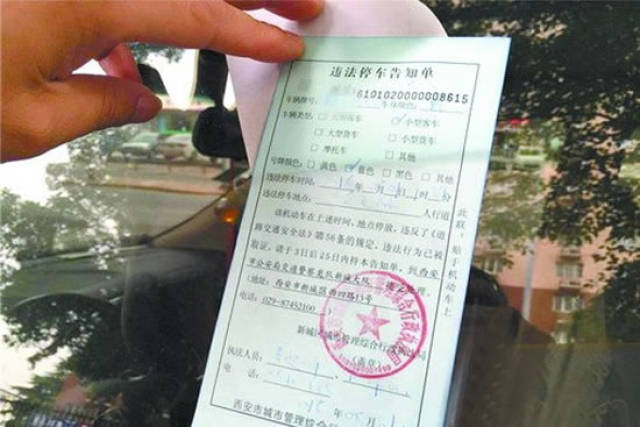 违法停车告知单
6101020000008615
车辆牌号: 车体颜色:
车辆类型: □大型客车 ☑小型客车
□大型货车 □小型货车
□摩托车 □其他
号牌颜色: □黄色 ☑蓝色 □黑色 □其他
违法停车时间: 15年 月 日 时 分
违法停车地点: 人行道
该机动车在上述时间、地点停放,违反了《道
路交通安全法》第56条的规定,违法行为已被
取证。请于3日后25日内持本告知单,到西安
市公安局交通警察支队新城大队 接受处理。
(地址: 西安市新城区西四路13号
电话: 029-87452100 )
新城区城市管理综合行政执法局
(盖章)
执法人员:
电 话:
15年05月
西安市城市管理综合
此联:贴于机动车上